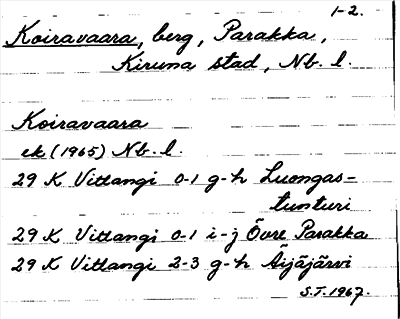 1-2.
Koiravaara, berg, Parakka,
Kiruna stad, Nb. l.
Koiravaara
ek (1965) Nb. l.
29 K Vittangi 0-1 g-h Luongas=
tunturi
29 K Vittangi 0-1 i-j Övre Parakka
29 K Vittangi 2-3 g-h Äijäjärvi
S.T. 1967.